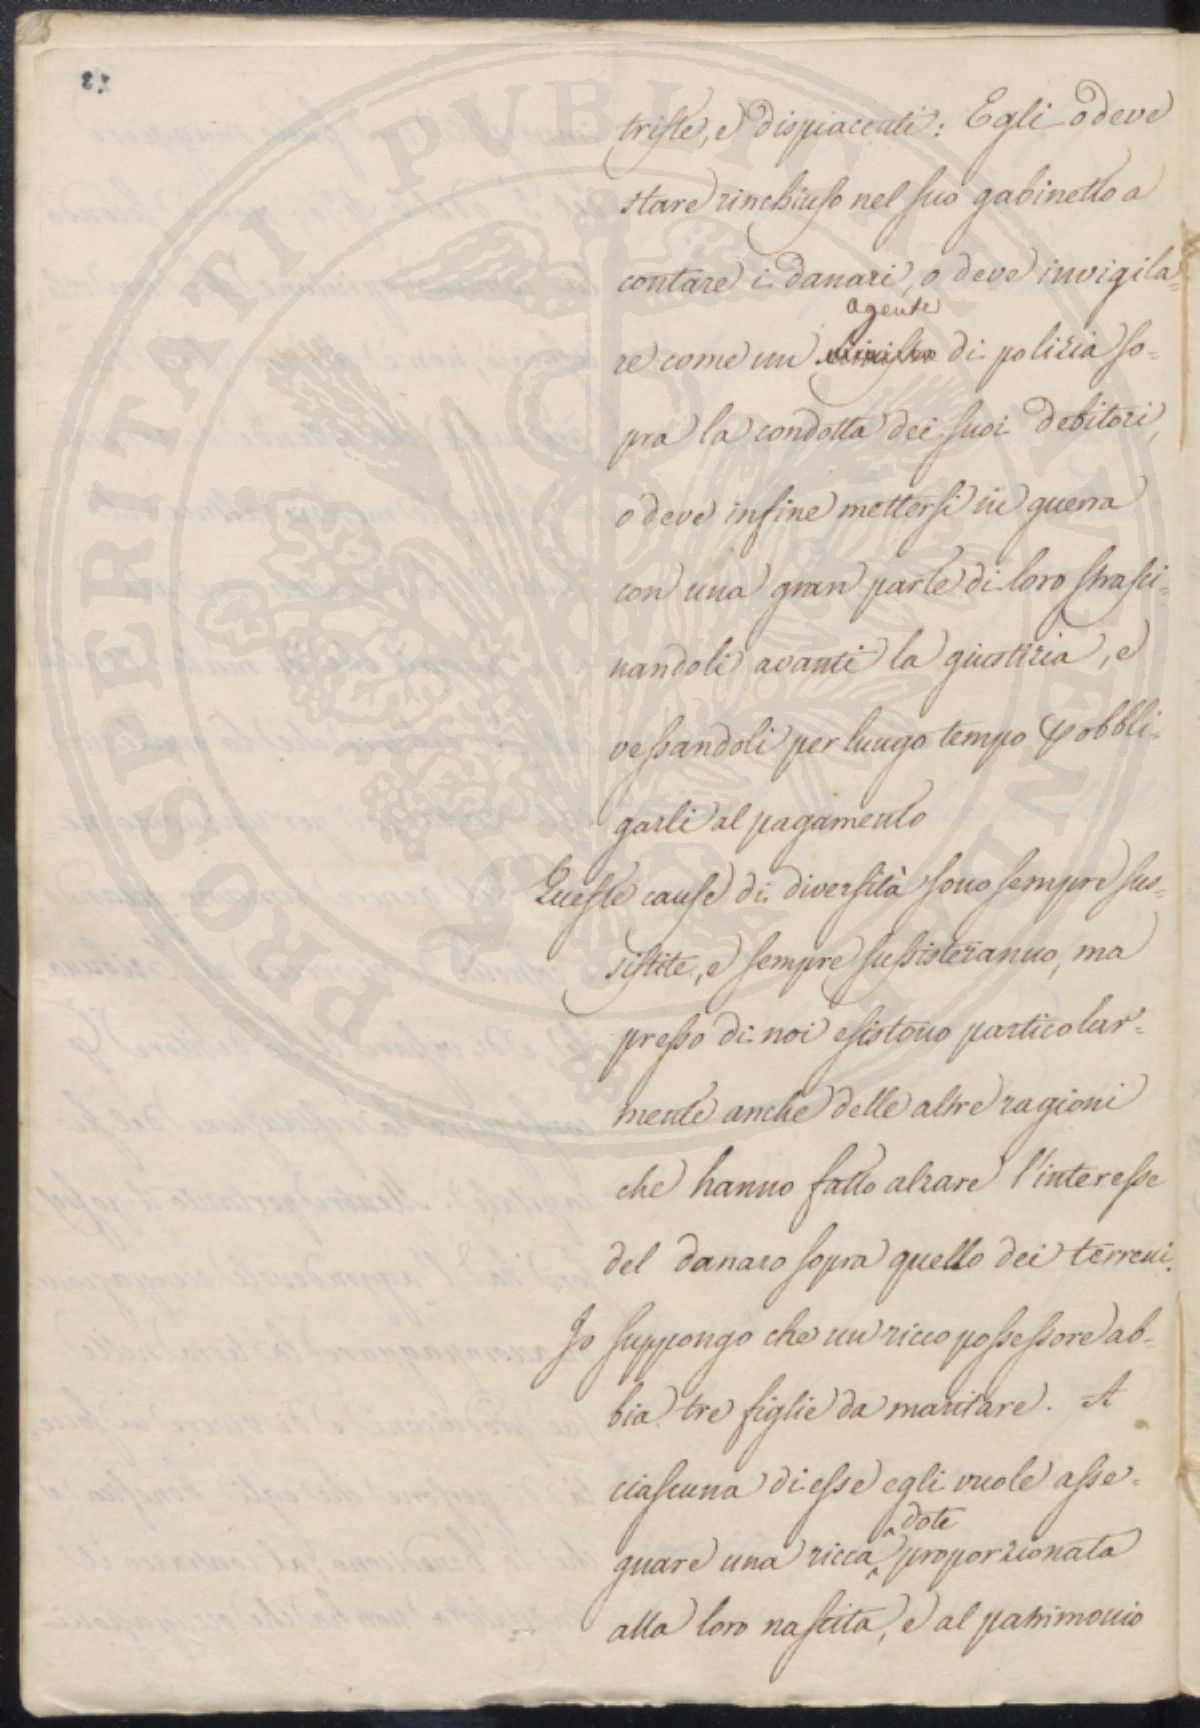 PROSPERITATI PUBLICAE AUGENDAE
triste, e dispiacenti: Egli o deve
stare rinchiuso nel suo gabinetto a
contare i danari, o deve invigila=
agente
re come un ministro di polizia so=
pra la condotta dei suoi debitori,
o deve infine mettersi in guerra
con una gran parte di loro strasci=
nandoli avanti la giustizia, e
vessandoli per lungo tempo p obbli=
garli al pagamento
Queste cause di diversità sono sempre sus=
sistite, e sempre sussisteranno, ma
presso di noi esistono particolar=
mente anche delle altre ragioni
che hanno fatto alzare l'interesse
del danaro sopra quello dei terreni.
Io suppongo che un ricco possessore ab=
bia tre figlie da maritare. A
ciascuna di esse egli vuole asse=
dote
gnare una ricca proporzionata
alla loro nascita, e al patrimonio